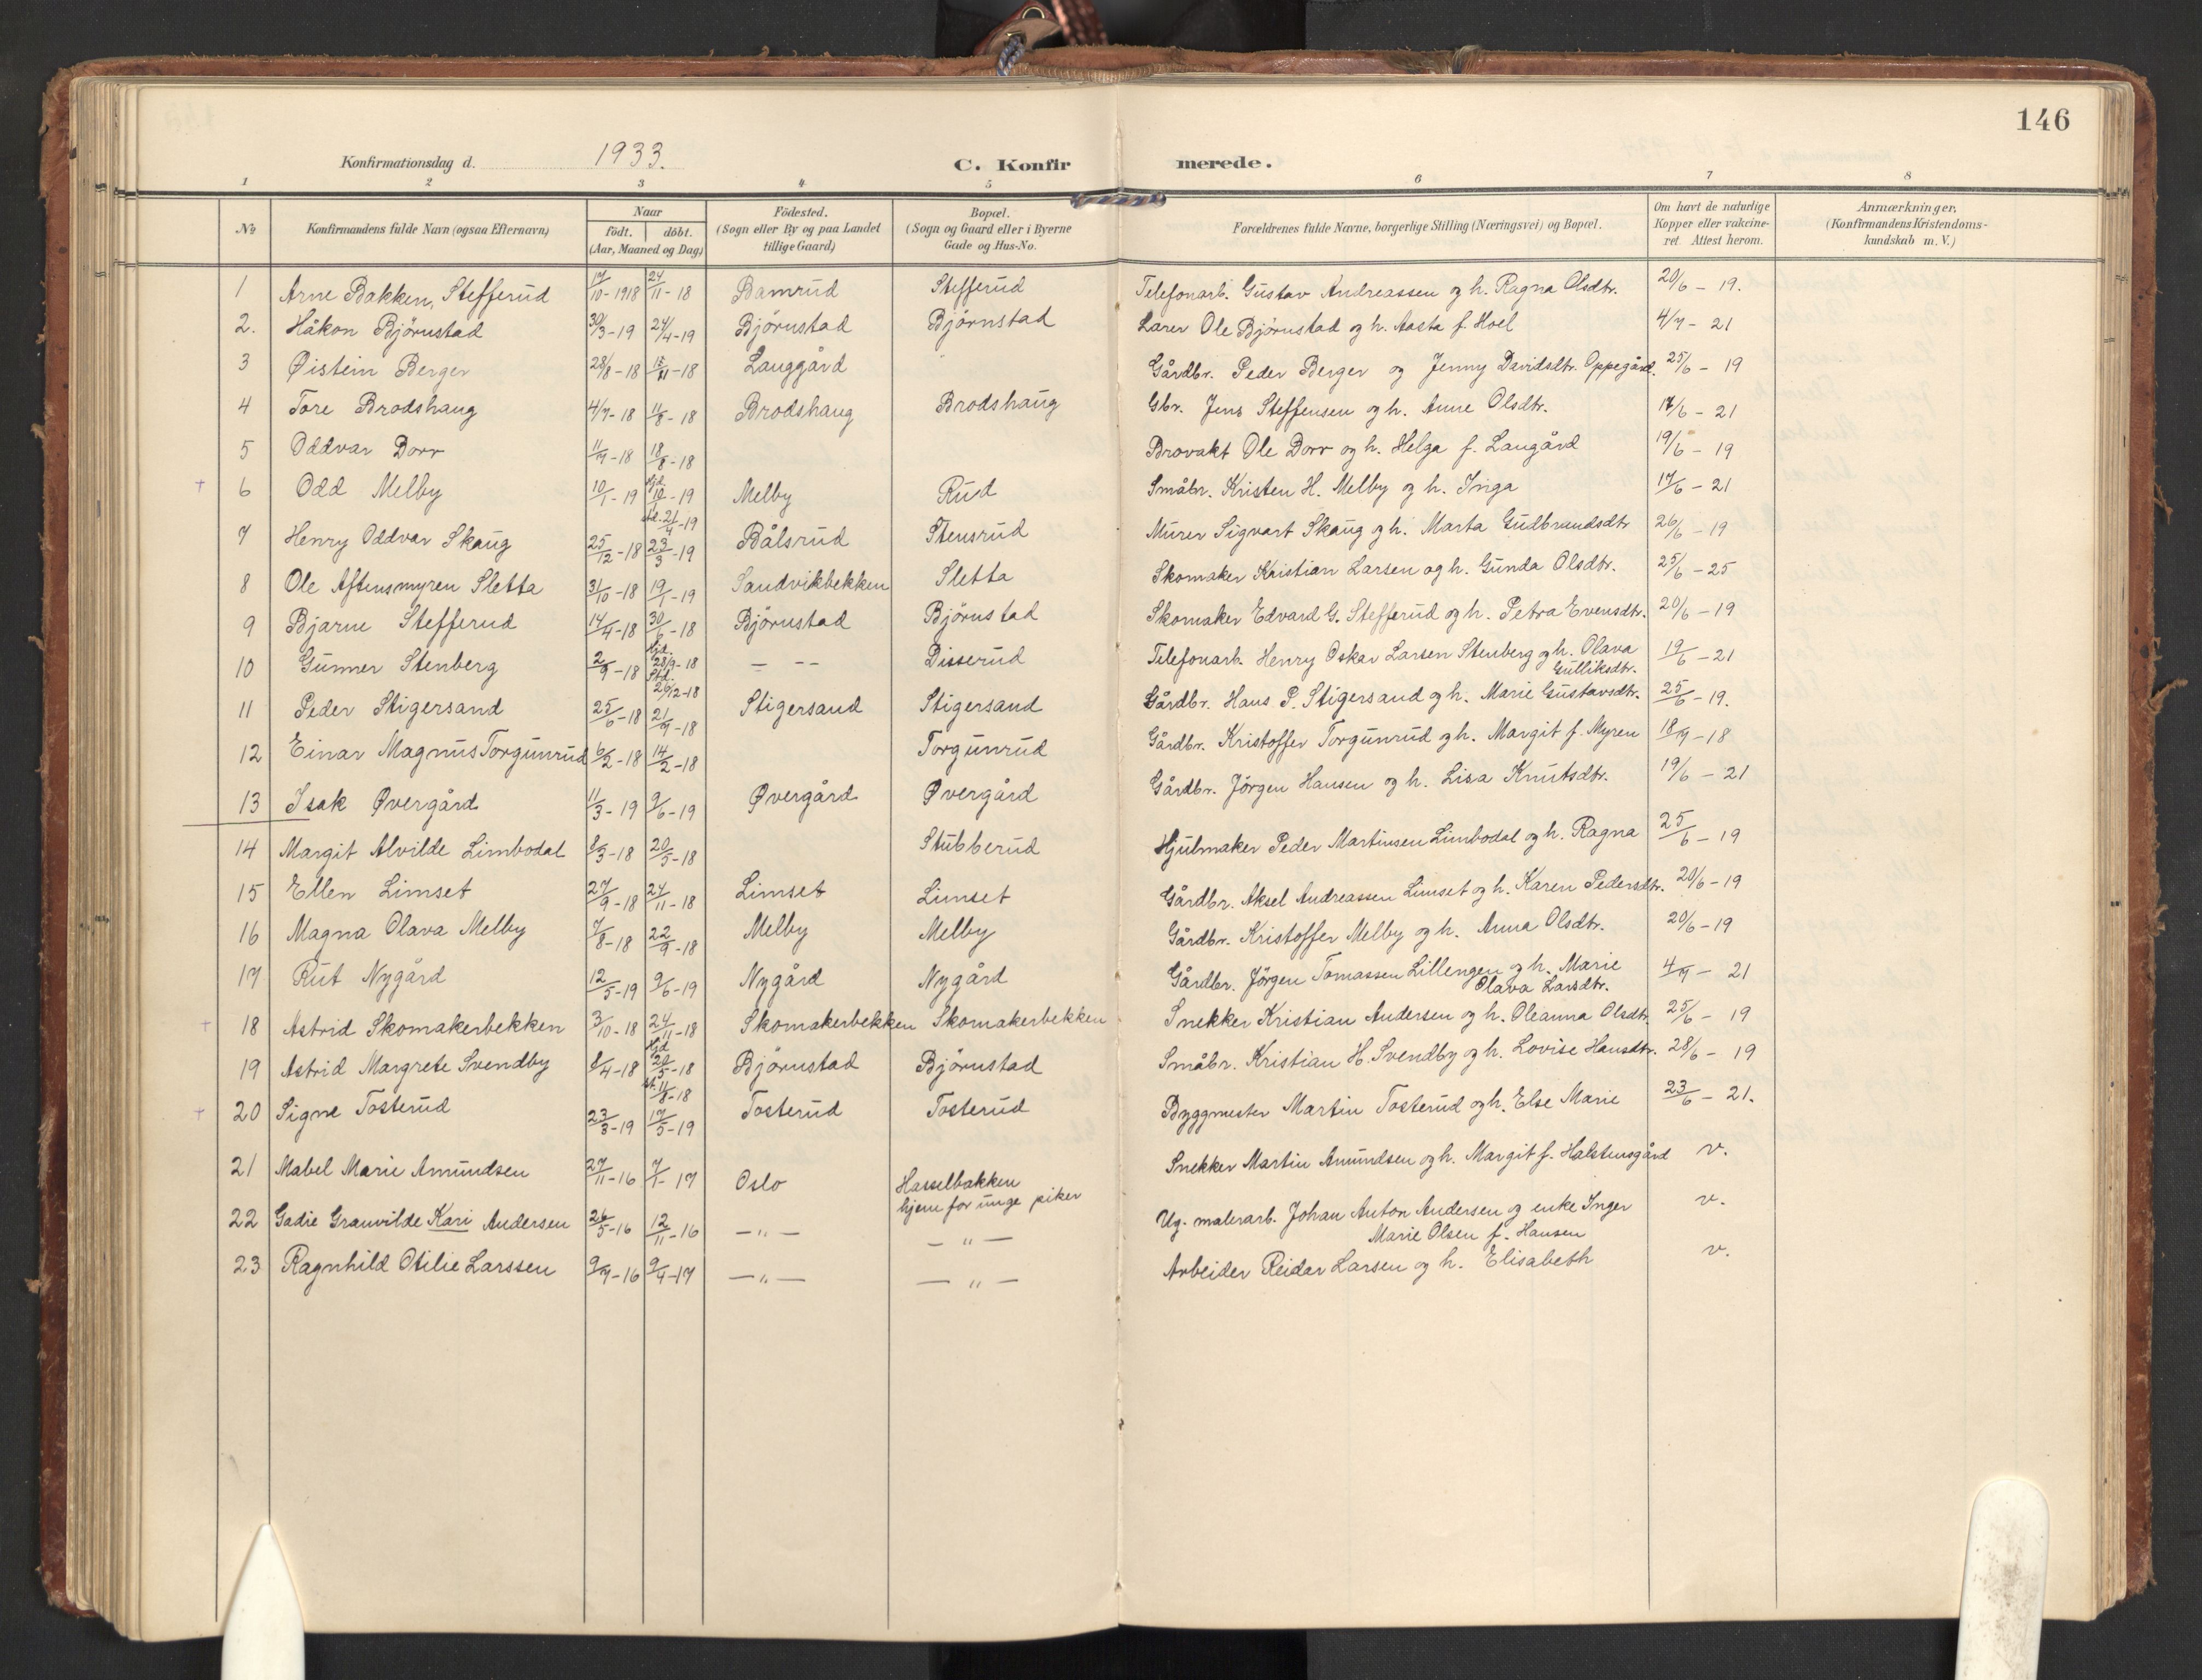 146
Konfirmationsdag d. 1933. C. Konfir merede.
1 2 3 4 5 6 7 8
No Konfirmandens fulde Navn (ogsaa Efternavn) Naar födt. döbt. (Aar, Maaned og Dag) Födested. (Sogn eller By og paa Landet tillige Gaard) Bopæl. (Sogn og Gaard eller i Byerne Gade og Hus-No. Forældrenes fulde Navne, borgerlige Stilling (Næringsvei) og Bopæl. Om havt de naturlige Kopper eller vakcineret. Attest herom. Anmærkninger. (Konfirmandens Kristendomskundskab m. V.)
1 Arne Bakken, Stefferud 17/10-1918 24/11-18 Bamrud Stefferud Telefonarb. Gustav Andreassen og h. Ragna Olsdtr. 20/6 - 19.
2. Håkon Björnstad 30/3-19 24/4-19 Björnstad Björnstad Lærer Ole Björnstad og h. Aasta f. Hoel 4/7 - 21
3 Øistein Berger 28/8-18 15/11-18 Langgård Gårdbr. Peder Berger og Jenny Davidsdtr. Oppegård. 25/6 - 19
4 Tore Brodshaug 4/7-18 11/8-18 Brodshaug Brodshaug Gbr. Jens Steffensen og h. Anne Olsdtr. 17/6 - 21
5 Oddvar Dorr 11/7-18 18/8-18 Brovakt Ole Dorr og h. Helga f. Laugård 19/6 - 19
+ 6 Odd Melby 10/1-19 hjd. 10/-19 std. 21/4-19 Melby Rud Småbr. Kristen H. Melby og h. Inga 17/6 - 21
7 Henry Oddvar Skaug 25/12-18 23/3-19 Bålsrud Stensrud Murer Sigvart Skaug og h. Marta Gudbrandsdtr 26/6 - 19
8 Ole Aftensmyren Sletta 31/10-18 19/1-19 Sandvikbekken Sletta Skomaker Kristian Larsen og h. Gunda Olsdtr. 25/6 - 25
9 Bjarne Stefferud 14/4-18 30/6-18 Björnstad Björnstad Skomaker Edvard G. Stefferud og h. Petra Evensdtr. 20/6 - 19
10 Gunner Stenberg 2/9-18 hjd. 28/9-18 std. 26/12-18 — -- Disserud Telefonarb. Henry Oskar Larsen Stenberg og h. Olava Gulliksdtr. 19/6 - 21
11 Peder Stigersand 25/6-18 21/9-18 Stigersand Stigersand Gårdbr. Hans P. Stigersand og h. Marie Gustavsdtr. 25/6 - 19.
12 Einar Magnus Torgunrud 6/2-18 14/2-18 Torgunrud Gårdbr. Kristoffer Torgunrud og h. Margit f. Myren 18/9 - 18
13 Isak Øvergård 11/3-19 9/6-19 Øvergård Øvergård Gårdbr. Jörgen Hansen og h. Lisa Knutsdtr. 19/6 - 21
14 Margit Alvilde Limbodal 8/3-18 20/5-18 Stubberud Hjulmaker Peder Martinsen Limbodal og h. Ragna 25/6 - 19
15 Ellen Limset 27/9-18 24/11-18 Limset Limset Gårdbr. Aksel Andreassen Limset og h. Karen Pedersdtr. 20/6 - 19
16 Magna Olava Melby 7/8-18 22/9-18 Melby Melby Gårdbr. Kristoffer Melby og h. Anna Olsdtr. 20/6 - 19
17 Rut Nygård 12/5-19 9/6-19 Nygård Nygård Gårdbr. Jörgen Tomassen Lillengen og h. Marie Olava Larsdtr. 4/7 - 21
+ 18 Astrid Skomakerbekken 3/10-18 24/11-18 Skomakerbekken Skomakerbekken Snekker Kristian Andersen og h. Oleanna Olsdtr. 25/6 - 19
19 Astrid Margrete Svendby 8/4-18 hjd 20/5-18 st. 11/8-18 Björnstad Björnstad Småbr. Kristian H. Svendby og h. Lovise Hansdtr. 28/6 - 19
+ 20 Signe Tosterud 23/3-19 17/5-19 Tosterud Tosterud Byggmester Martin Tosterud og h. Else Marie 23/6 - 21.
21 Mabel Marie Amundsen 27/11-16 7/1-17 Oslo Hasselbakken hjem for unge piker Snekker Martin Amundsen og h. Margit f. Halstensgård v.
22 Gadie Granvilde Kari Andersen 26/5-16 12/11-16 —"— —"— Ug. malerarb. Johan Anton Andersen og enke Inger Marie Olsen f. Hansen v.
23 Ragnhild Otilie Larssen 9/7-16 9/4-17 —"— —"— Arbeider Reidar Larsen og h. Elisabeth v.